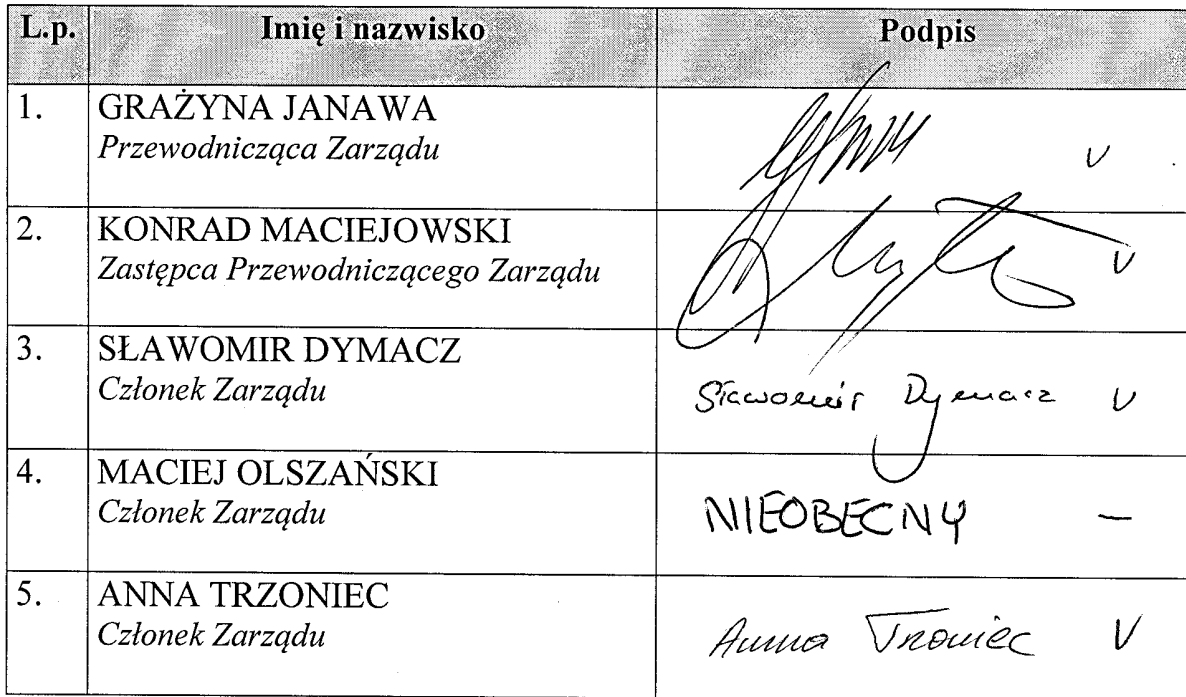 L.p. Imię i nazwisko Podpis
1. GRAŻYNA JANAWA
Przewodnicząca Zarządu V
2. KONRAD MACIEJOWSKI
Zastępca Przewodniczącego Zarządu V
3. SŁAWOMIR DYMACZ
Członek Zarządu Sławomir Dymacz V
4. MACIEJ OLSZAŃSKI
Członek Zarządu NIEOBECNY —
5. ANNA TRZONIEC
Członek Zarządu Anna Trzoniec V